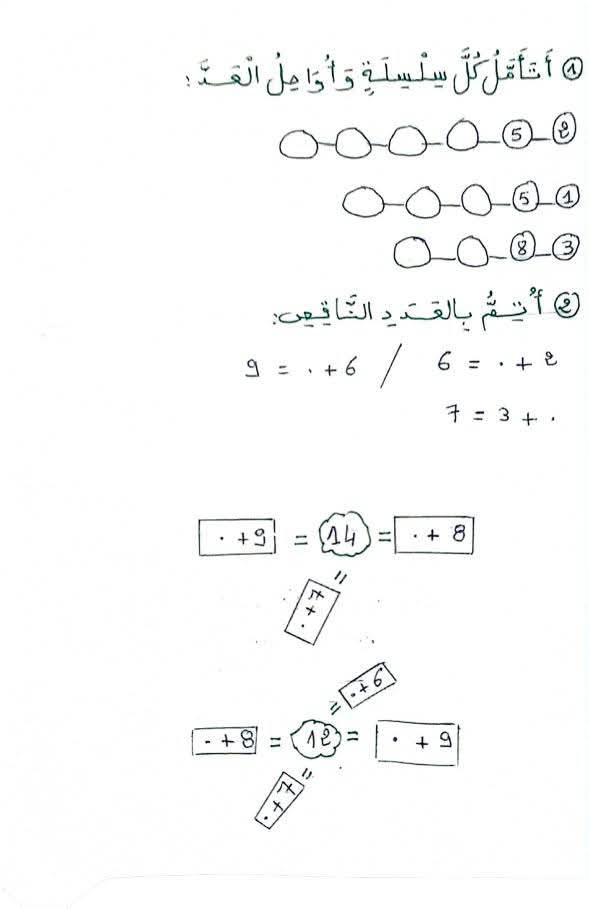 ① أَتَأَمَّلُ كُلَّ سِلْسِلَةٍ وَأُوَاصِلُ الْعَدَّ:
2 5
1 5
3 8
② أُتِمُّ بِالعَدَدِ النَّاقِصِ:
2 + . = 6 / 6 + . = 9
. + 3 = 7
8 + . = 14 = 9 + .
=
. + 7
. + 6
=
9 + . = 12 = 8 + .
=
. + 7